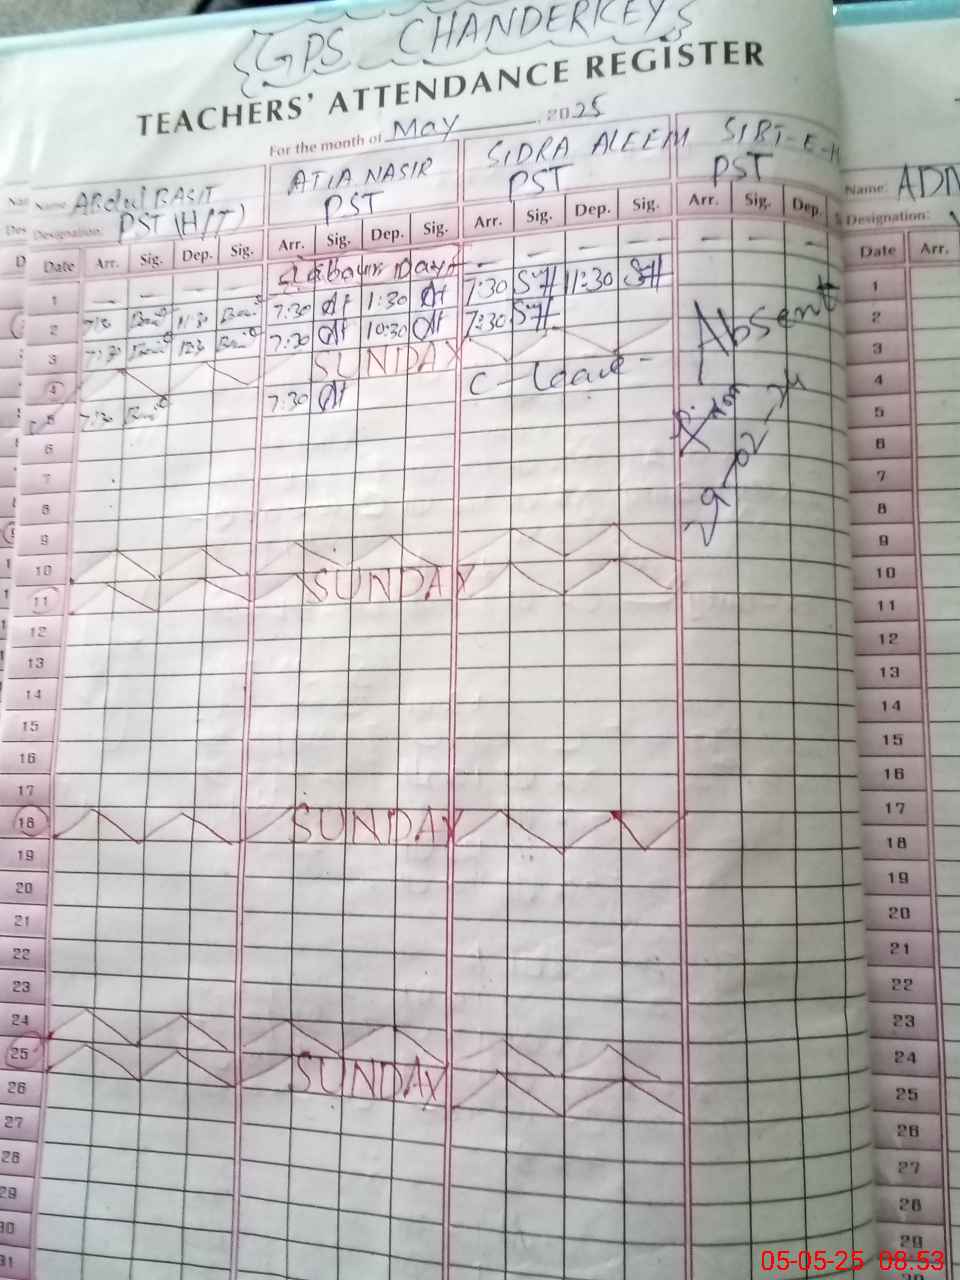 GPS CHANDERKEY
TEACHERS' ATTENDANCE REGISTER
For the month of May, 2025
Name: Abdul BASIT ATIA NASIR SIDRA ALEEM SIRT-E-H Name: ADN
Designation: PST (H/T) PST PST PST Designation:
Date Arr. Sig. Dep. Sig. Arr. Sig. Dep. Sig. Arr. Sig. Dep. Sig. Arr. Sig. Dep. Date Arr.
1 — — — — Day — — — — — — — 1
2 7:30 11:30 7:30 1:30 7:30 11:30 Absent 2
3 7:30 7:30 10:30 7:30 3
4 SUNDAY 4
5 7:30 7:30 C-leave 5
6 from 6
7 7
8 8
9 9
10 10
11 SUNDAY 11
12 12
13 13
14 14
15 15
16 16
17 17
18 SUNDAY 18
19 19
20 20
21 21
22 22
23 23
24 24
25 SUNDAY 25
26 26
27 27
28 28
29 29
30
31
05-05-25 08:53